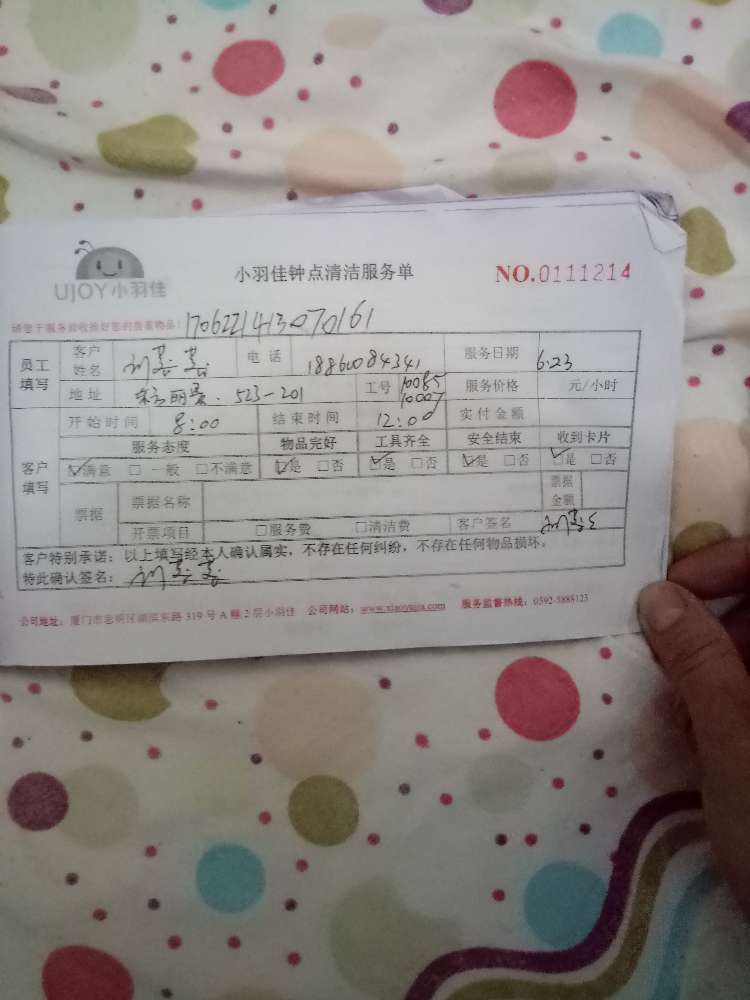 UJOY小羽佳
小羽佳钟点清洁服务单
NO.0111214
请您于服务前收拾好您的贵重物品: 170622141307 0161
员工填写 客户姓名 电话 18860084341 服务日期 6.23
地址 丽景. 523-201 工号 10085 10007 服务价格 元/小时
开始时间 8:00 结束时间 12:00 实付金额
客户填写 服务态度 物品完好 工具齐全 安全结束 收到卡片
☑满意 □一般 □不满意 ☑是 □否 ☑是 □否 ☑是 □否 ☑是 □否
票据 票据名称 票据金额
开票项目 □服务费 □清洁费 客户签名
客户特别承诺: 以上填写经本人确认属实, 不存在任何纠纷, 不存在任何物品损坏.
特此确认签名:
公司地址: 厦门市思明区湖滨东路 319 号 A 幢 2 层小羽佳 公司网站: www.xiaoyujia.com 服务监督热线: 0592-5885123